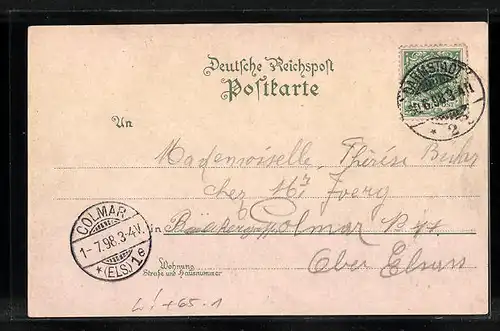 Deutsche Reichspost
Postkarte
DARMSTADT
6.98.3-4N
* 2
An
Mademoiselle Thérèse
chez Mr Joerg
in Colmar
Ober Elsass
COLMAR
1-7.98.3-4V.
* (ELS) 1e
Wohnung
Straße und Hausnummer
L! +65.-1